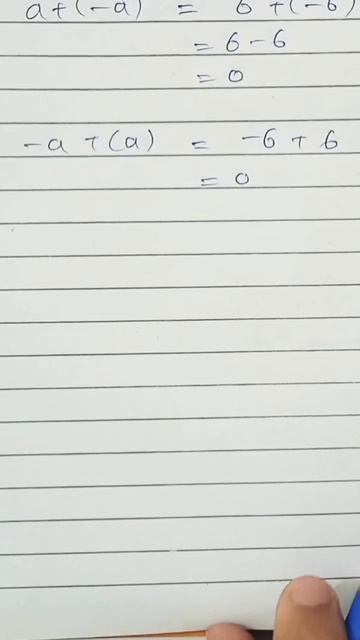 a + (-a) = 6 + (-6)
= 6 - 6
= 0
-a + (a) = -6 + 6
= 0